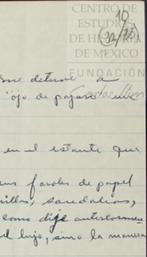 CENTRO DE
ESTUDIOS
DE HISTORIA
DE MEXICO
FUNDACIÓN
10
me detuve a
"ojo de pájaro" un
en el estante que
faroles de papel
sandalias,
como dije anteriormen
el lujo, sino la manera